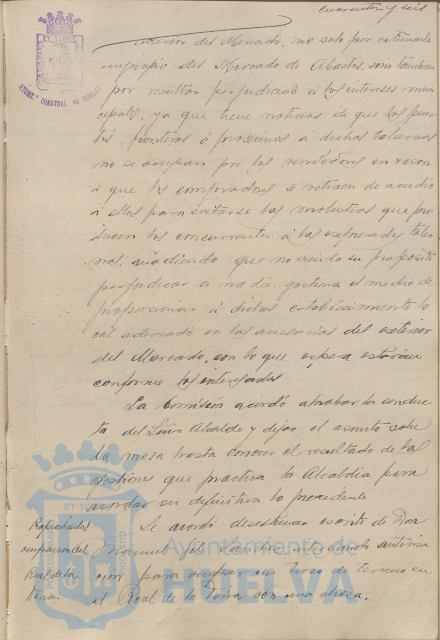 cuarenta y seis
interior del Mercado, no solo por estimarlo
impropio del Mercado de Abastos, sino tambien
por resultar perjudicial á los intereses muni
cipales, ya que tiene noticias de que los pues
tos fronteros ó proximos á dichas tabernas
no se ocupan por los vendedores en razon
á que los compradores se retraen de acudir
á ellos para evitarse las molestias que pro
ducen los concurrentes á las expresadas taber
nas, añadiendo que no siendo su proposito
perjudicar á nadie, gestiona el medio de
proporcionar á dichos establecimientos lo
cal adecuado en las accesorias del exterior
del Mercado, con lo que espera estarán
conforme los interesados
La Comisión acordó aprobar la conduc
ta del Señor Alcalde y dejar el asunto sobre
la mesa hasta conocer el resultado de las
gestiones que practica la Alcaldia para
acordar en definitiva lo procedente
Se acordó desestimar escrito de Don
Manuel
autoriza
ción para ocupar un trozo de terreno en
el Real de la Feria con una choza.
ocupacion del
Real de la
Feria.
AYUNT.º CONSTNAL. DE HUELVA
Ayuntamiento de
HUELVA